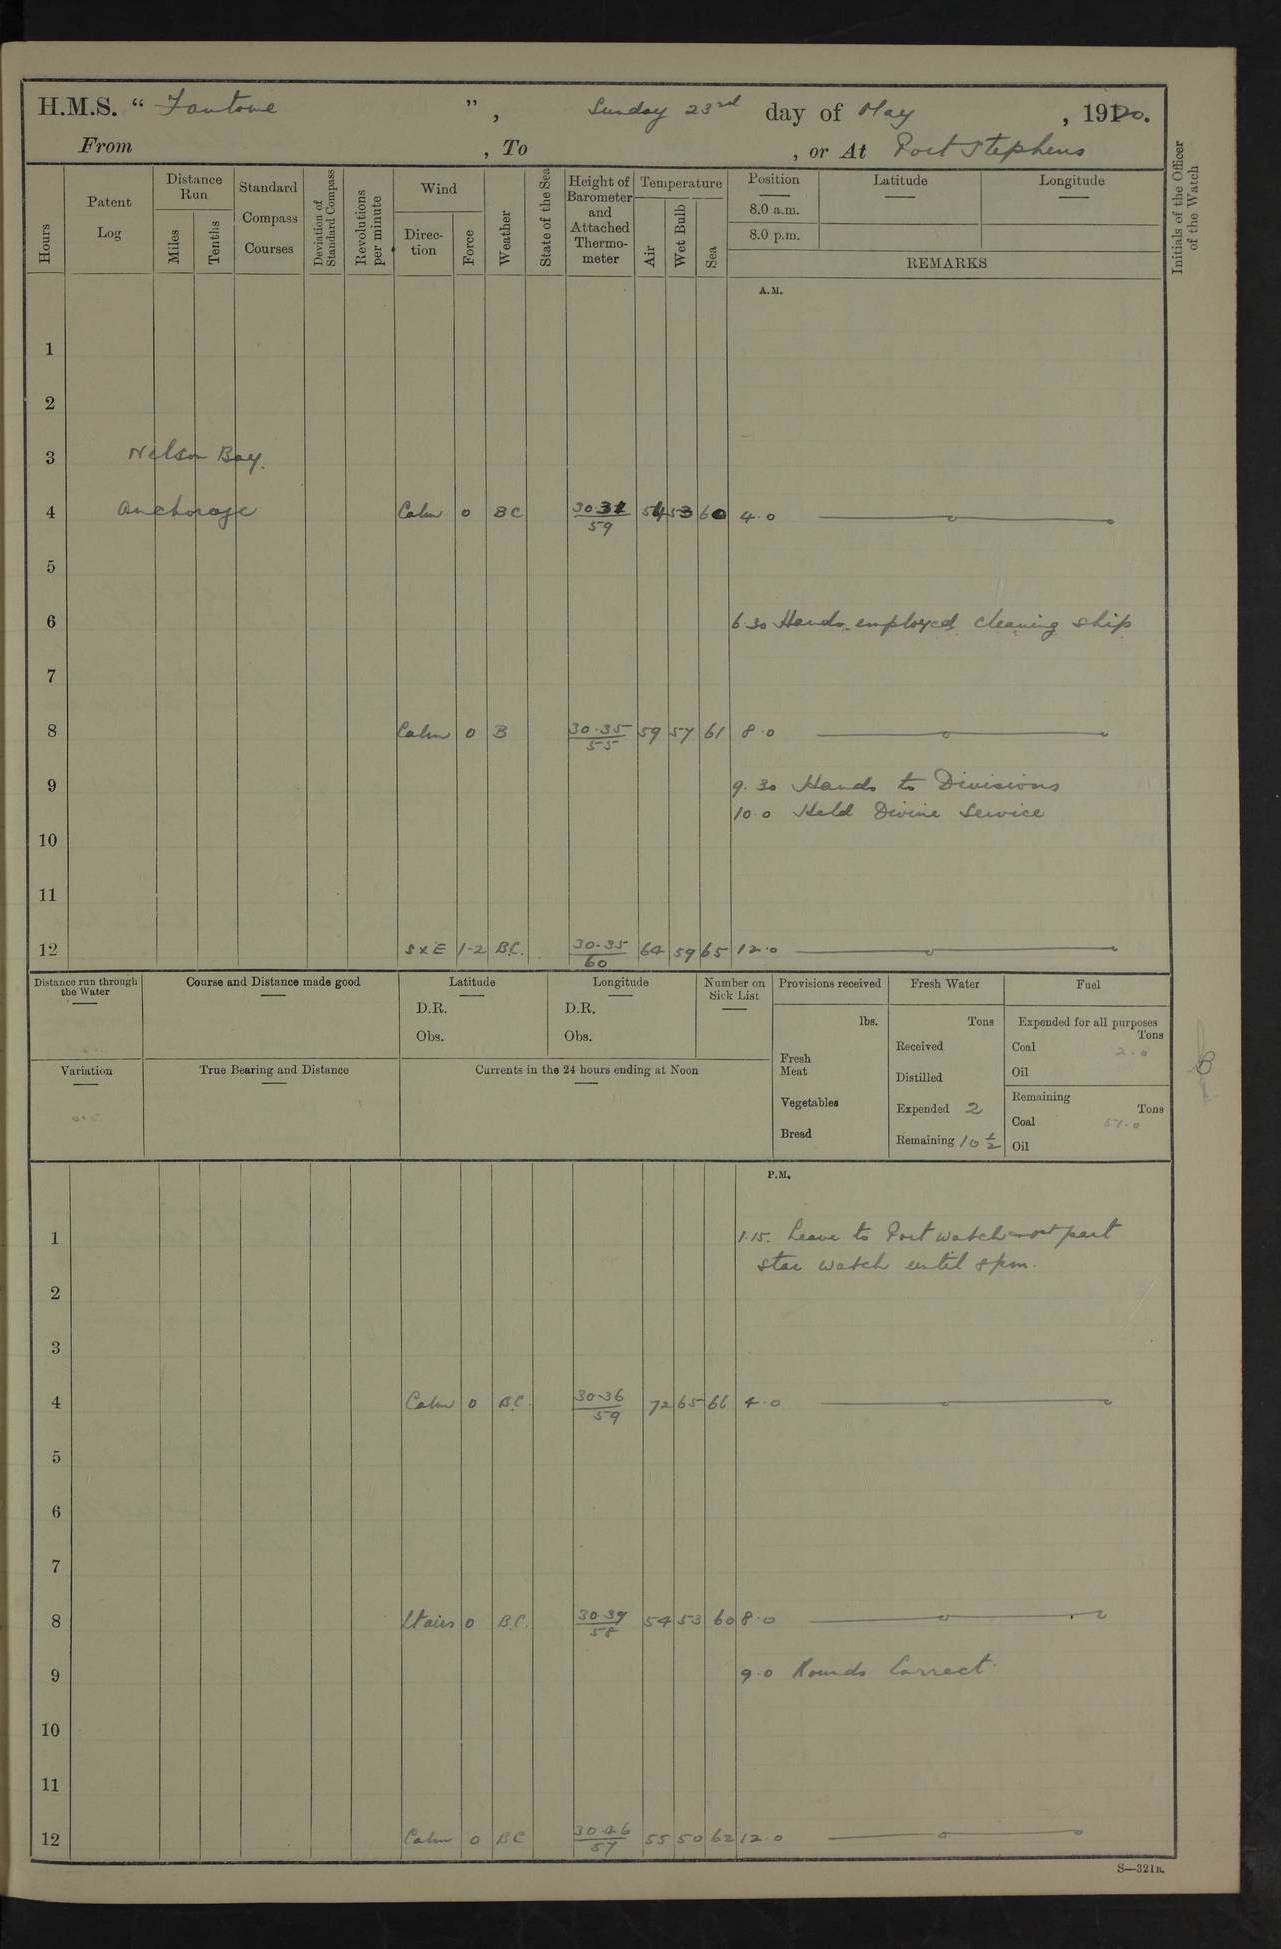 H.M.S. “ Fantome ”, Sunday 23rd day of May , 1920.
From , To , or At Port Stephens
Hours
Patent Log
Distance Run
Miles
Tenths
Standard Compass Courses
Deviation of Standard Compass
Revolutions per minute
Wind
Direction
Force
Weather
State of the Sea
Height of Barometer and Attached Thermometer
Temperature
Air
Wet Bulb
Sea
Position
8.0 a.m.
8.0 p.m.
Latitude
Longitude
REMARKS
Initials of the Officer of the Watch
A.M.
1
2
3 Nelson Bay.
4 Anchorage Calm 0 BC 59 53 60 4.0
5
6 6.30 Hands employed cleaning ship
7
8 Calm 0 B 30.35 55 59 57 61 8.0
9 9.30 Hands to Divisions
10.0 Held Divine Service
10
11
12 SxE 1-2 B.C. 30.35 60 64 59 65 12.0
Distance run through the Water
Course and Distance made good
Latitude
D.R.
Obs.
Longitude
D.R.
Obs.
Number on Sick List
Provisions received
lbs.
Fresh Meat
Vegetables
Bread
Fresh Water
Tons
Received
Distilled
Expended 2
Remaining 10 1/2
Fuel
Expended for all purposes
Tons
Coal 2.0
Oil
Remaining
Tons
Coal
Oil
Variation
True Bearing and Distance
Currents in the 24 hours ending at Noon
P.M.
1 1.15. Leave to Port watch part
star watch until 8pm.
2
3
4 Calm 0 B.C. 30.36 59 72 65 66 4.0
5
6
7
8 Lt airs 0 B.C. 30.39 58 54 53 60 8.0
9 9.0 Rounds Correct.
10
11
12 Calm 0 BC 30.46 57 55 50 62 12.0
S—321B.